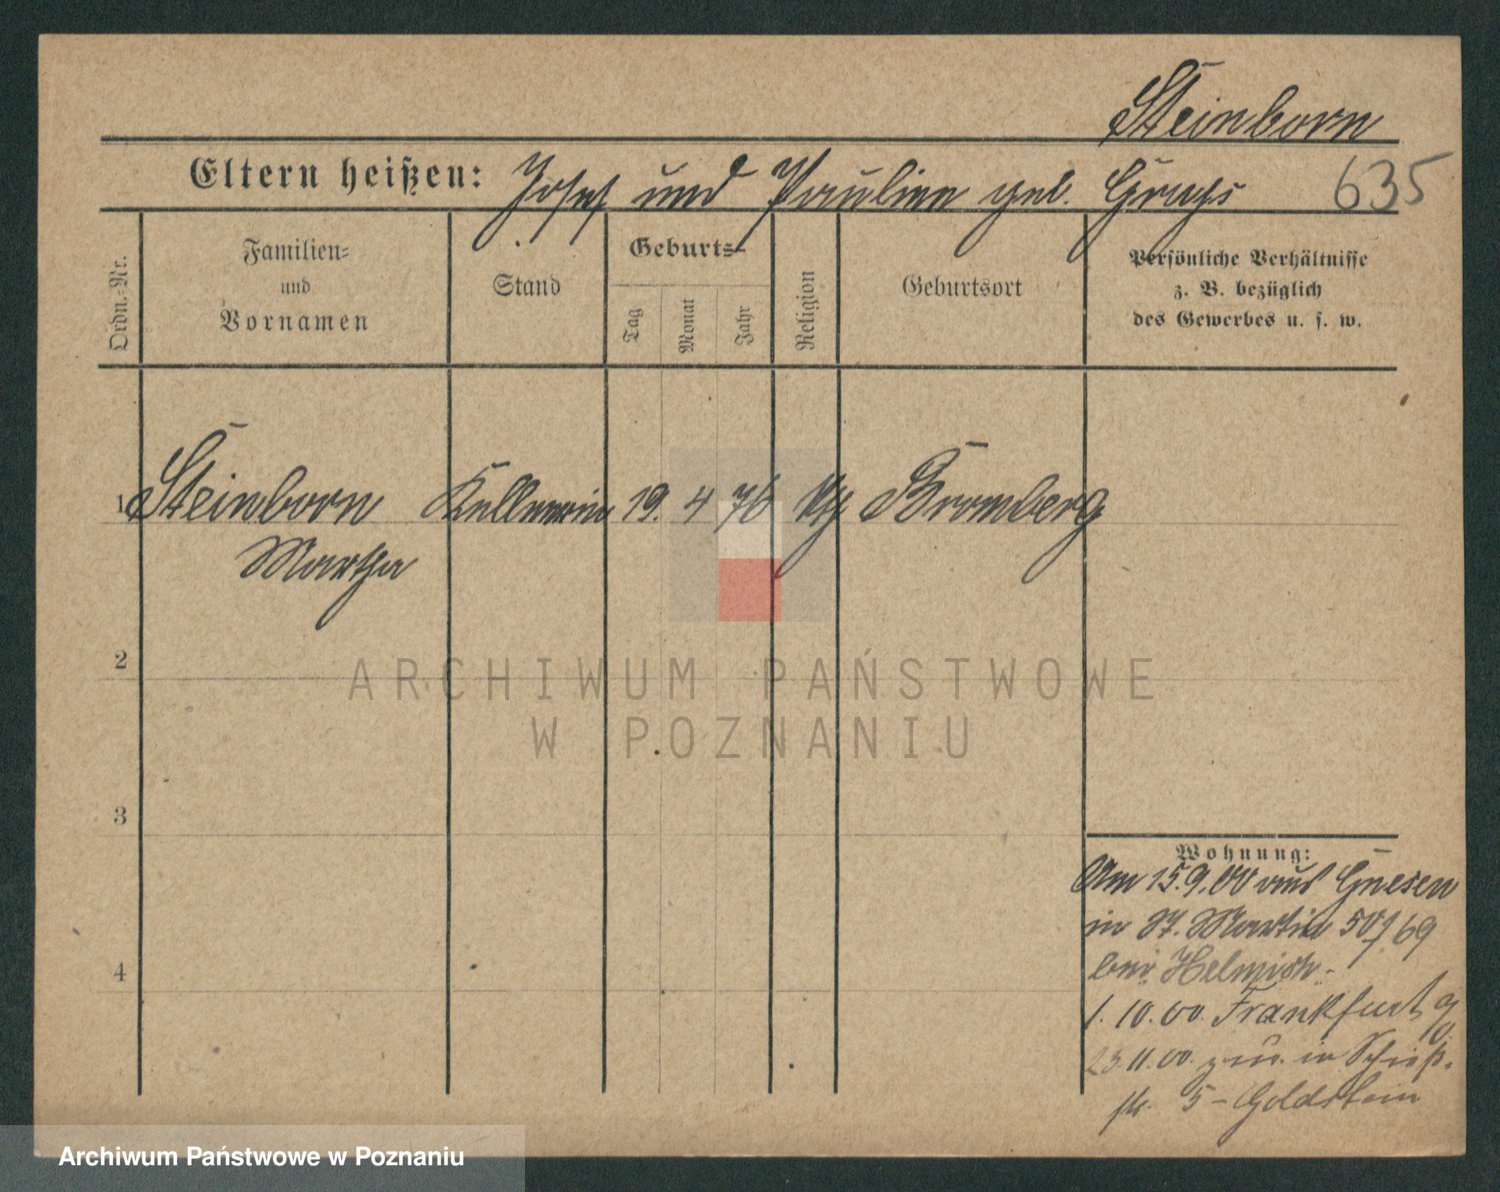 Steinborn
Eltern heißen: Josef und Pauline geb.
635
Ordn.-Nr.
Familien-
und
Vornamen
Stand
Geburts-
Tag
Monat
Jahr
Religion
Geburtsort
Persönliche Verhältnisse
z. B. bezüglich
des Gewerbes u. s. w.
1 Steinborn Kellnerin 19. 4 76 kth Bromberg
Martha
2
3
4
Wohnung:
Am 15.9.00 aus Gnesen
in St. Martin 50/69
bei Helmich.
1.10.00. Frankfurt
23.11.00. zur. in Schieß-
str. 5 - Goldstein
ARCHIWUM PAŃSTWOWE
W POZNANIU
Archiwum Państwowe w Poznaniu